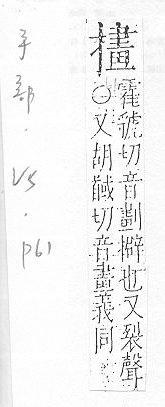 㩇
霍號切音劃擗也又裂聲
〇又胡馘切音畫義同
手部.15.p61